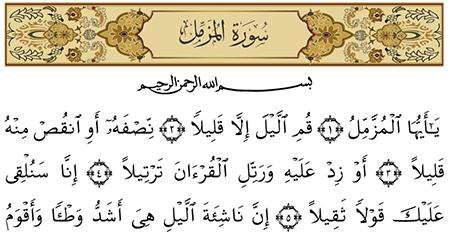 سُورَةُ المُزَّمِّل
بسم الله الرحمن الرحيم
يَـٰٓأَيُّهَا ٱلْمُزَّمِّلُ ﴿١﴾ قُمِ ٱلَّيْلَ إِلَّا قَلِيلاً ﴿٢﴾ نِّصْفَهُۥٓ أَوِ ٱنقُصْ مِنْهُ
قَلِيلاً ﴿٣﴾ أَوْ زِدْ عَلَيْهِ وَرَتِّلِ ٱلْقُرْءَانَ تَرْتِيلاً ﴿٤﴾ إِنَّا سَنُلْقِى
عَلَيْكَ قَوْلاً ثَقِيلاً ﴿٥﴾ إِنَّ نَاشِئَةَ ٱلَّيْلِ هِىَ أَشَدُّ وَطْـًٔا وَأَقْوَمُ